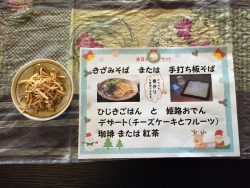 きざみそば または 手打ち板そば
ひじきごはん と 姫路おでん
デザート（チーズケーキとフルーツ）
珈琲 または 紅茶